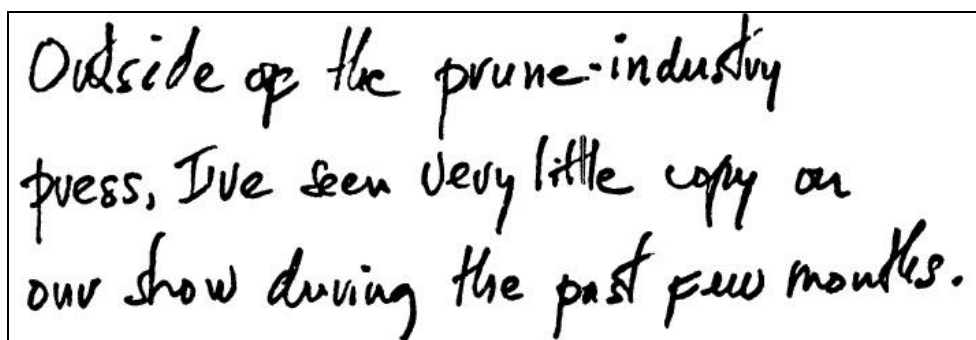 Outside of the prune-industry
press, I've seen very little copy on
our show during the past few months.